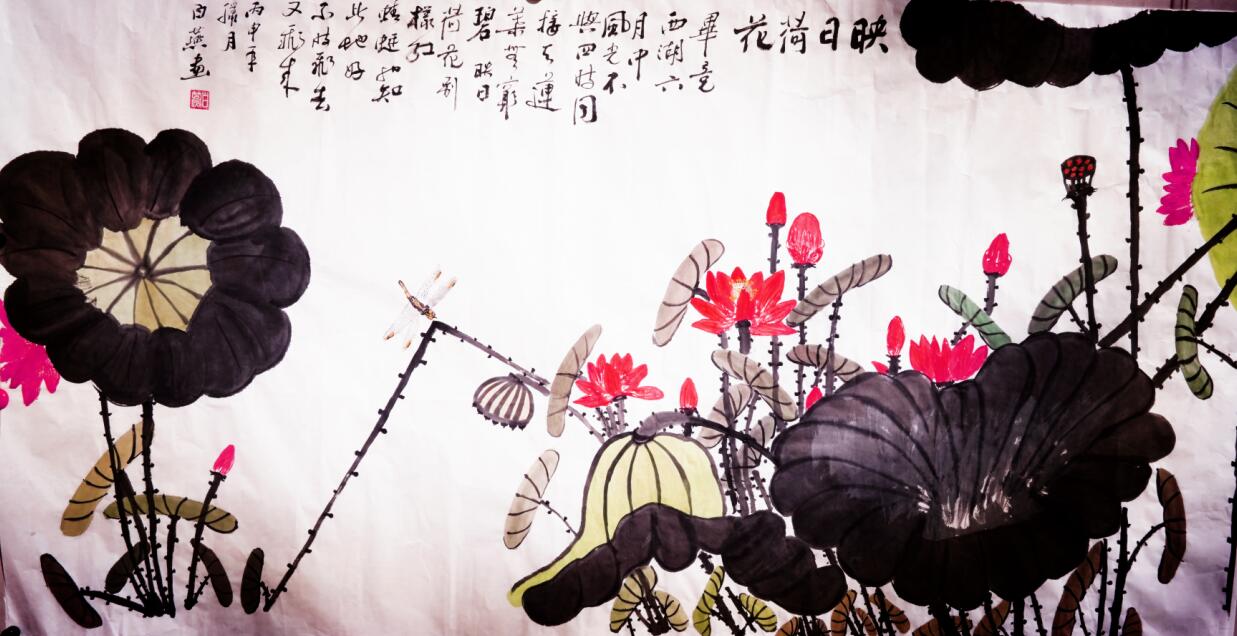 映日荷花
畢竟
西湖六
月中
風光不
與四時同
接天蓮
葉無窮
碧映日
荷花別
樣紅
蜻蜓如知
此地好
不時飛去
又飛來
丙申年
臘月
白燕畫